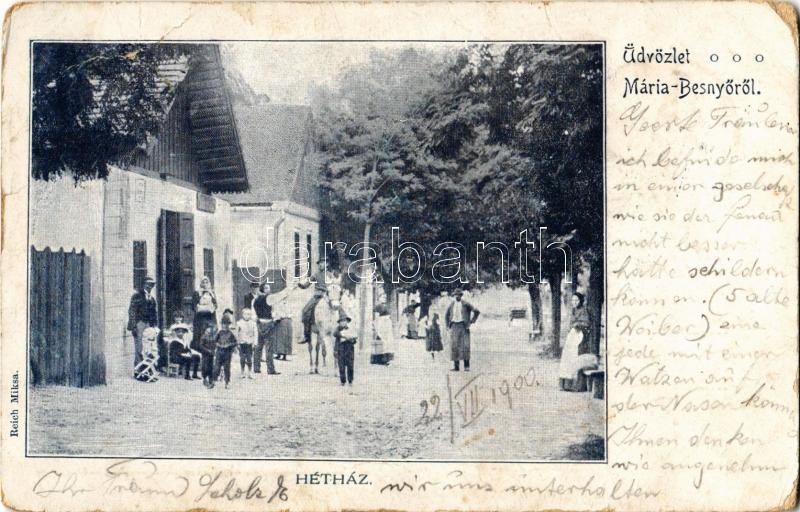 Üdvözlet o o o
Mária-Besnyőről.
ich befinde mich
in einer
wie sie der
nicht besser
hätte schildern
können. (5 alte
Weiber) eine
jede mit einer
Warzen auf
der Nase
Ihnen denken
wie angenehm
wir uns unterhalten
Ihr
22/VII 1900.
HÉTHÁZ.
Reich Miksa.
darabanth.com